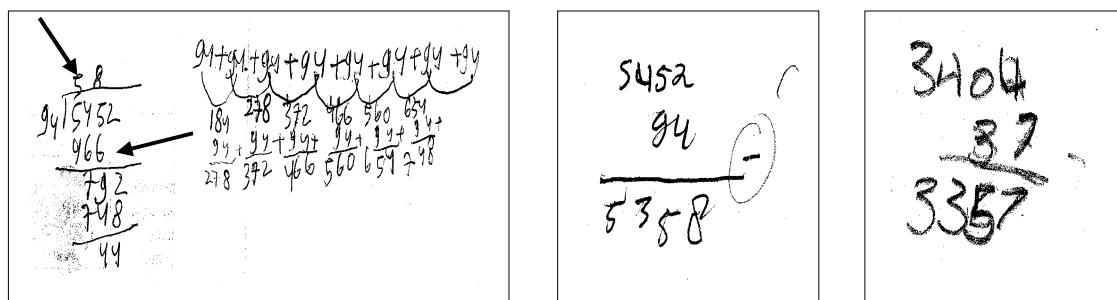 58
94)5452
466
792
748
44
94+94+94+94+94+94+94+94
184 278 372 466 560 654
94+ 94+ 94+ 94+ 94+ 94+
278 372 466 560 654 748
5452
94
-
5358
3404
37
3357